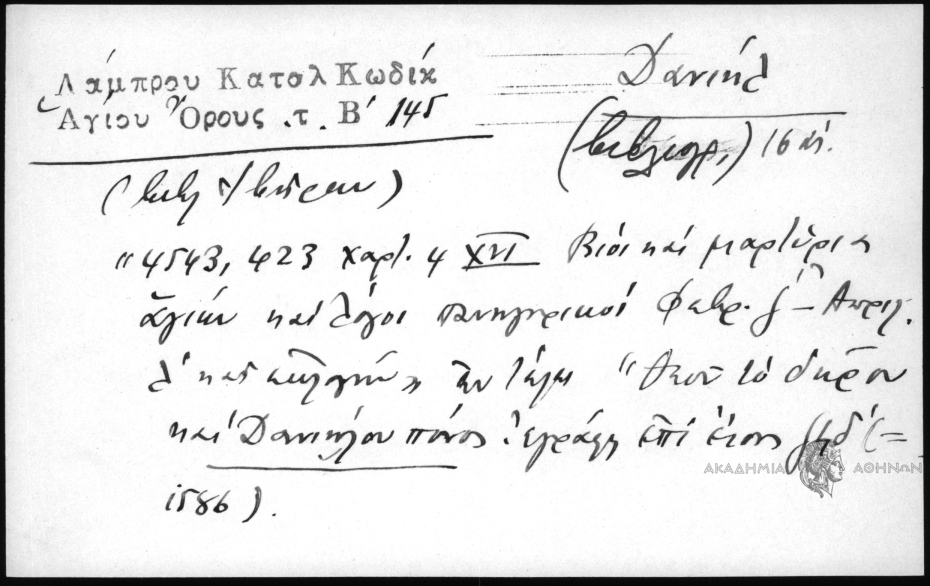 Λάμπρου Καταλ Κωδίκ
Ἁγίου Ὄρους .τ. Β' 145
Δανιήλ
(βιβλιογρ.) 16 αἰ.
"4543, 423 χαρτ. 4 XVI Βίοι καὶ μαρτύρια
ἁγίων καὶ λόγοι πανηγυρικοί Φεβρ. – Ἀπριλ.
λ' καὶ ἐν τέλει "Θεοῦ τὸ δῶρον
καὶ Δανιήλου πόνος ἐγράφη ἐπί ἔτους (=
1586).
ΑΚΑΔΗΜΙΑ ΑΘΗΝΩΝ